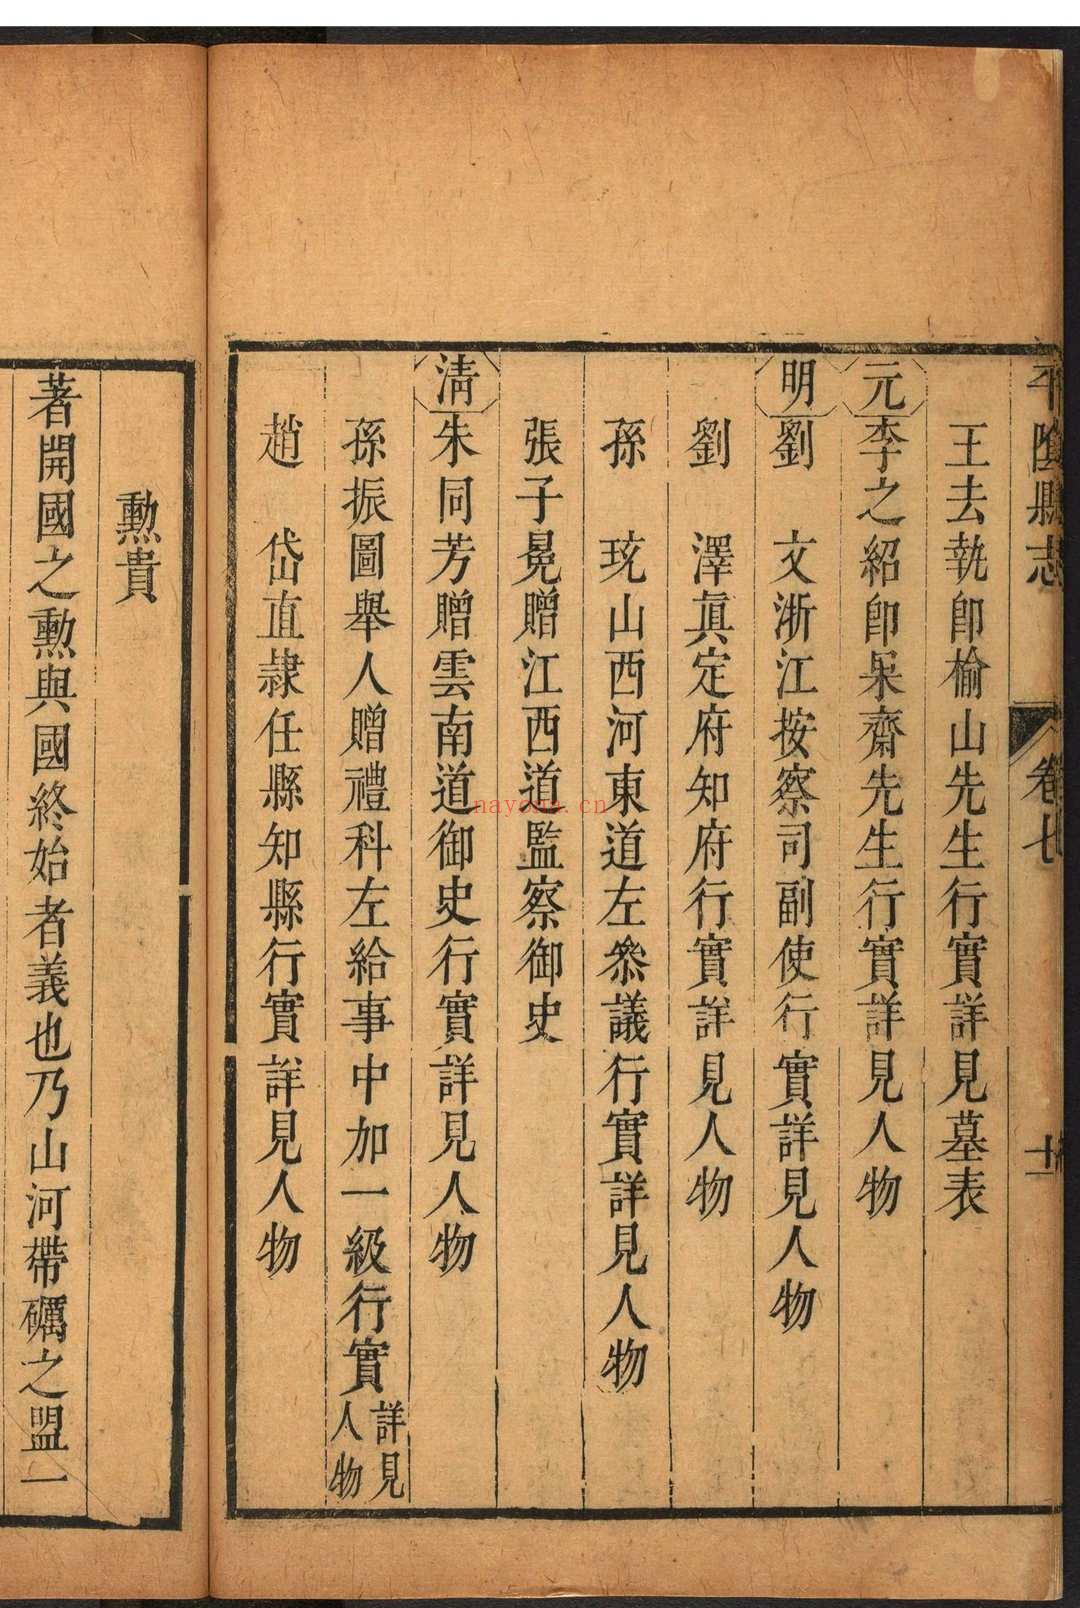 平陰縣志 卷七 十一
王去執卽榆山先生行實詳見墓表
元 李之紹卽杲齋先生行實詳見人物
明 劉 文浙江按察司副使行實詳見人物
劉 澤眞定府知府行實詳見人物
孫 玧山西河東道左叅議行實詳見人物
張子冕贈江西道監察御史
淸 朱同芳贈雲南道御史行實詳見人物
孫振圖舉人贈禮科左給事中加一級行實詳見人物
趙 岱直隷任縣知縣行實詳見人物
勲貴
著開國之勲與國終始者義也乃山河帶礪之盟一
nayona.cn